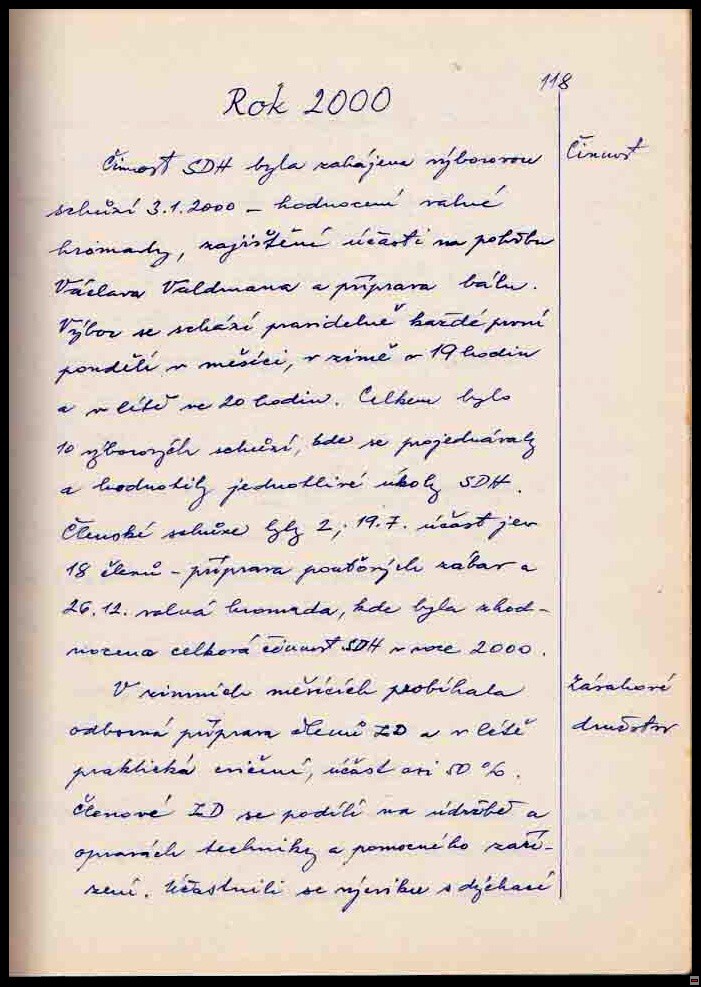 118
Rok 2000
Činnost SDH byla zahájena výborovou
Činnost
schůzí 3.1.2000 – hodnocení valné
hromady, zajištění účasti na pohřbu
Václava Valdmana a příprava bálu.
Výbor se schází pravidelně každé první
pondělí v měsíci, v zimě v 19 hodin
a v létě ve 20 hodin. Celkem bylo
10 výborových schůzí, kde se projednávaly
a hodnotily jednotlivé úkoly SDH.
Členské schůze byly 2, 19.7. účast jen
18 členů – příprava pouťových zábav a
26.12. valná hromada, kde byla zhod-
nocena celková činnost SDH v roce 2000.
V zimních měsících probíhala
Zásahové
odborná příprava členů ZD a v létě
družstvo
praktická cvičení, účast asi 50 %.
Členové ZD se podílí na údržbě a
opravách techniky a pomocného zaří-
zení. Účastnili se výcviku s dýchací